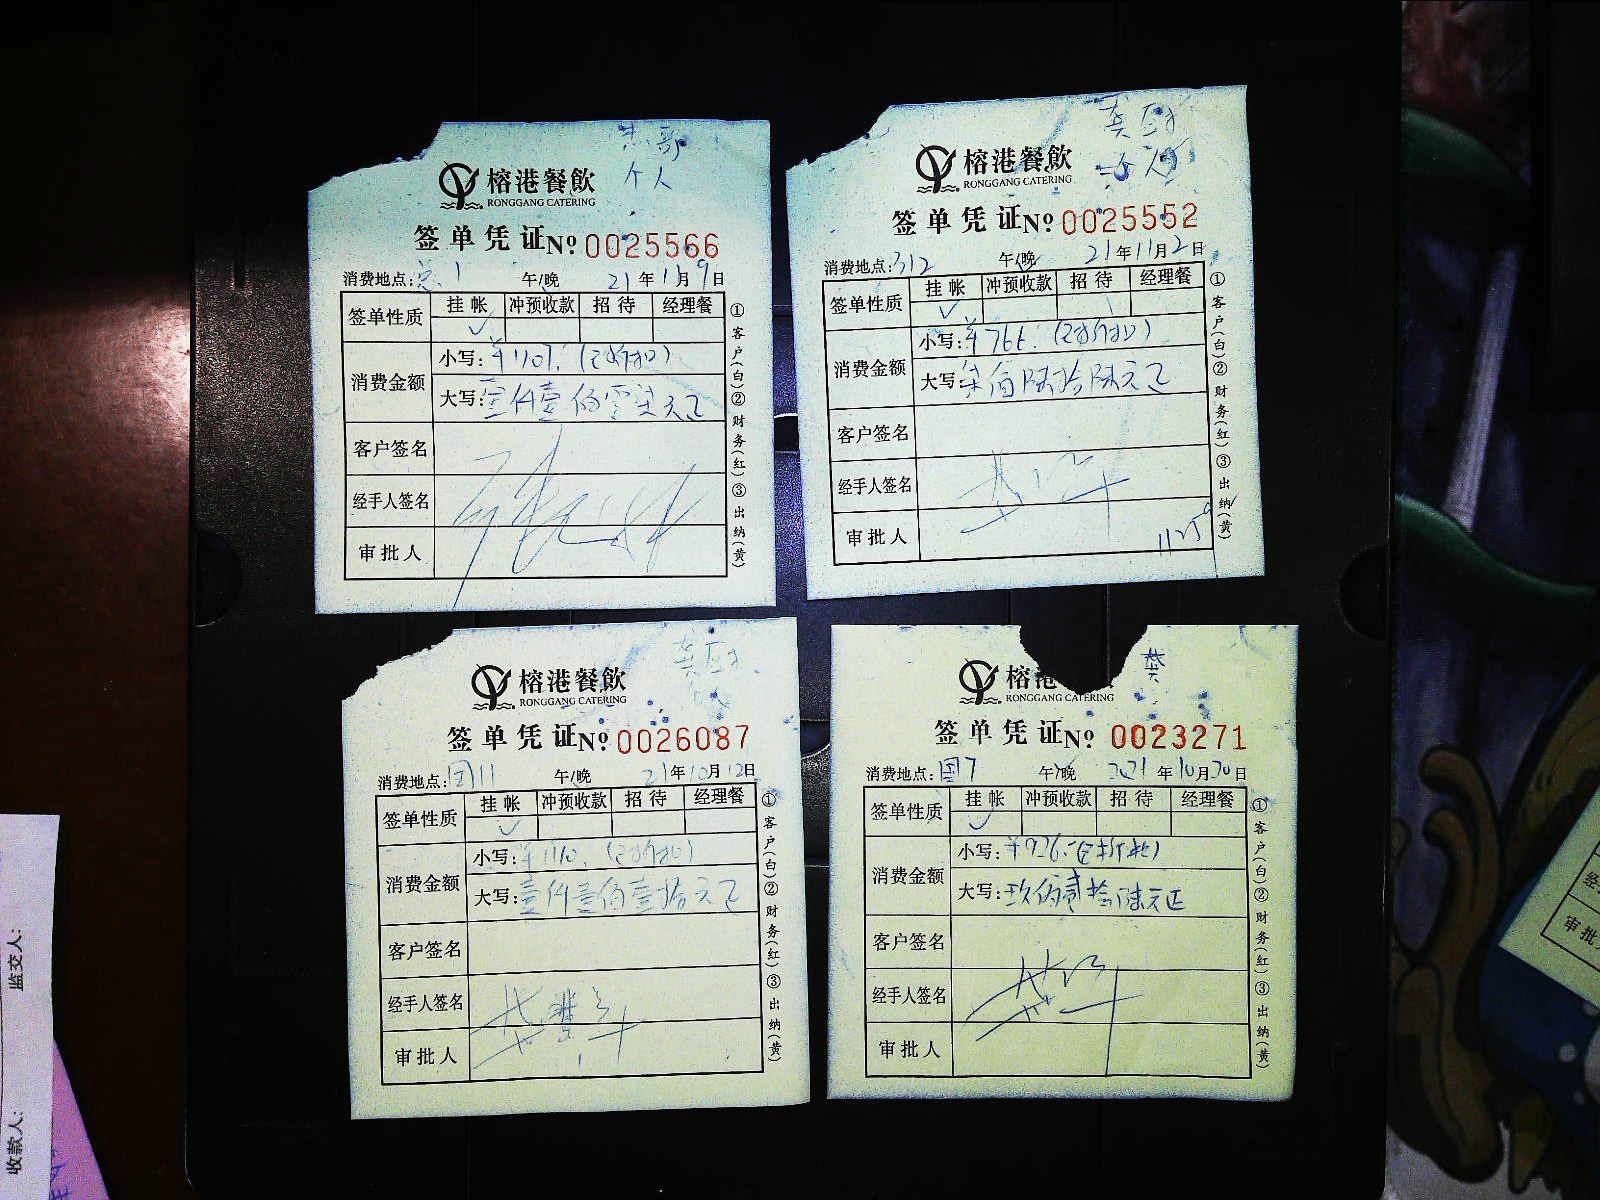 朱哥
个人
榕港餐飲
RONGGANG CATERING
签单凭证 № 0025566
消费地点: 总1 午/晚 21年11月9日
签单性质 挂帐 冲预收款 招待 经理餐
✓
消费金额
小写: ¥1107. (已折扣)
大写: 壹仟壹佰零柒元正
客户签名
经手人签名
审批人
①客户(白)②财务(红)③出纳(黄)
个人
榕港餐飲
RONGGANG CATERING
签单凭证 № 0025552
消费地点: 312 午/晚 21年11月2日
签单性质 挂帐 冲预收款 招待 经理餐
✓
消费金额
小写: ¥766. (已折扣)
大写: 柒佰陆拾陆元正
客户签名
经手人签名
审批人
①客户(白)②财务(红)③出纳(黄)
榕港餐飲
RONGGANG CATERING
签单凭证 № 0026087
消费地点: 团11 午/晚 21年10月12日
签单性质 挂帐 冲预收款 招待 经理餐
✓
消费金额
小写: ¥1110. (已折扣)
大写: 壹仟壹佰壹拾元正
客户签名
经手人签名
审批人
①客户(白)②财务(红)③出纳(黄)
樊
榕港
RONGGANG CATERING
签单凭证 № 0023271
消费地点: 团7 午/晚 2021年10月30日
签单性质 挂帐 冲预收款 招待 经理餐
✓
消费金额
小写: ¥926.-(已折扣)
大写: 玖佰贰拾陆元正
客户签名
经手人签名
审批人
①客户(白)②财务(红)③出纳(黄)
监交人:
收款人:
审批